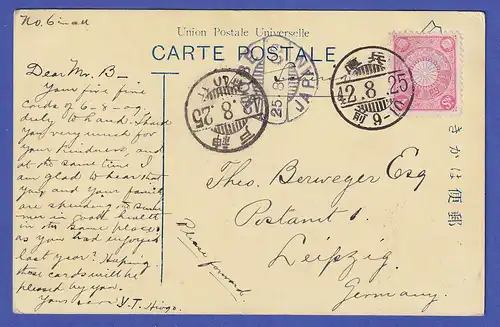 No. 6
Union Postale Universelle
CARTE POSTALE
Dear Mr. B—
Your five fine
cards of 6-8-09
duly to hand. Thank
you very much for
your kindness, and
at the same time I
am glad to hear that
you and your family
are spending the sum-
mer in good health
in the same places
as you had enjoyed
last year? Hoping
those cards will be
pleased by you.
Yours Y. T. Hiogo.
KOBE
JAPAN
25 8
神戸
42.8.25
兵庫
42.8.25
前9-10
きかは便郵
Theo. Berweger Esq
Postamt 1.
Leipzig
Germany.
Please forward.